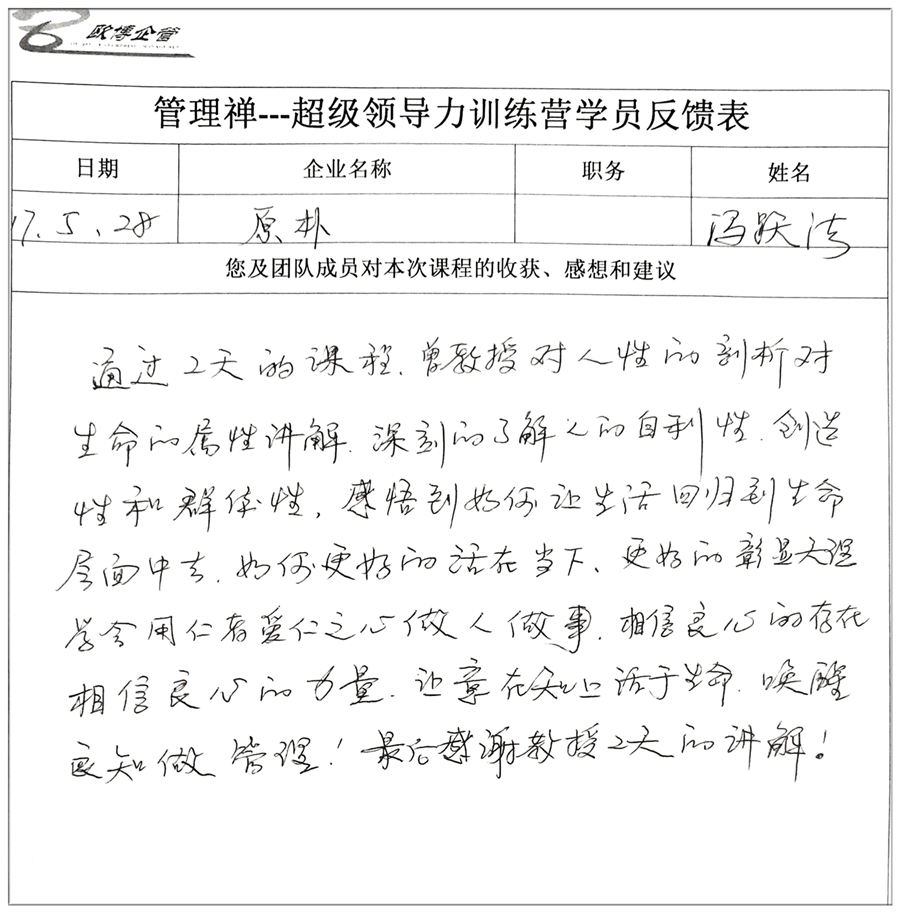 欧博企管
管理禅---超级领导力训练营学员反馈表
日期 企业名称 职务 姓名
17.5.28 原朴 冯跃法
您及团队成员对本次课程的收获、感想和建议
通过2天的课程.曾教授对人性的剖析对
生命的属性讲解.深刻的了解人的自利性.创造
性和群体性,感悟到如何让生活回归到生命
层面中去.如何更好的活在当下、更好的彰显天理
学会用仁者爱仁之心做人做事.相信良心的存在
相信良心的力量.让 在 活于生命.唤醒
良知做管理!最后感谢教授2天的讲解!